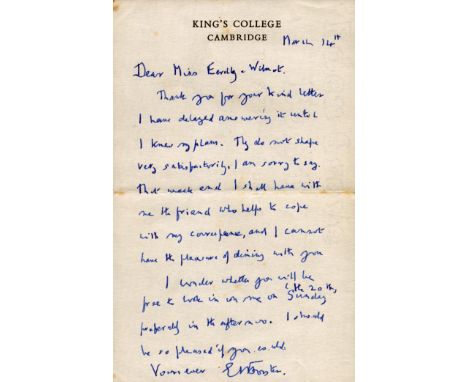 KING'S COLLEGE
CAMBRIDGE
March 14th
Dear Miss Eardley-Wilmot.
Thank you for your kind letter
I have delayed answering it until
I knew my plans. They do not shape
very satisfactorily, I am sorry to say.
That week end I shall have with
me the friend who helps to cope
with my correspce, and I cannot
have the pleasure of dining with you
I wonder whether you will be
free to look in on me on Sunday (the 20th)
preferably in the afternoon. I should
be so pleased if you could
Yours ever EMForster